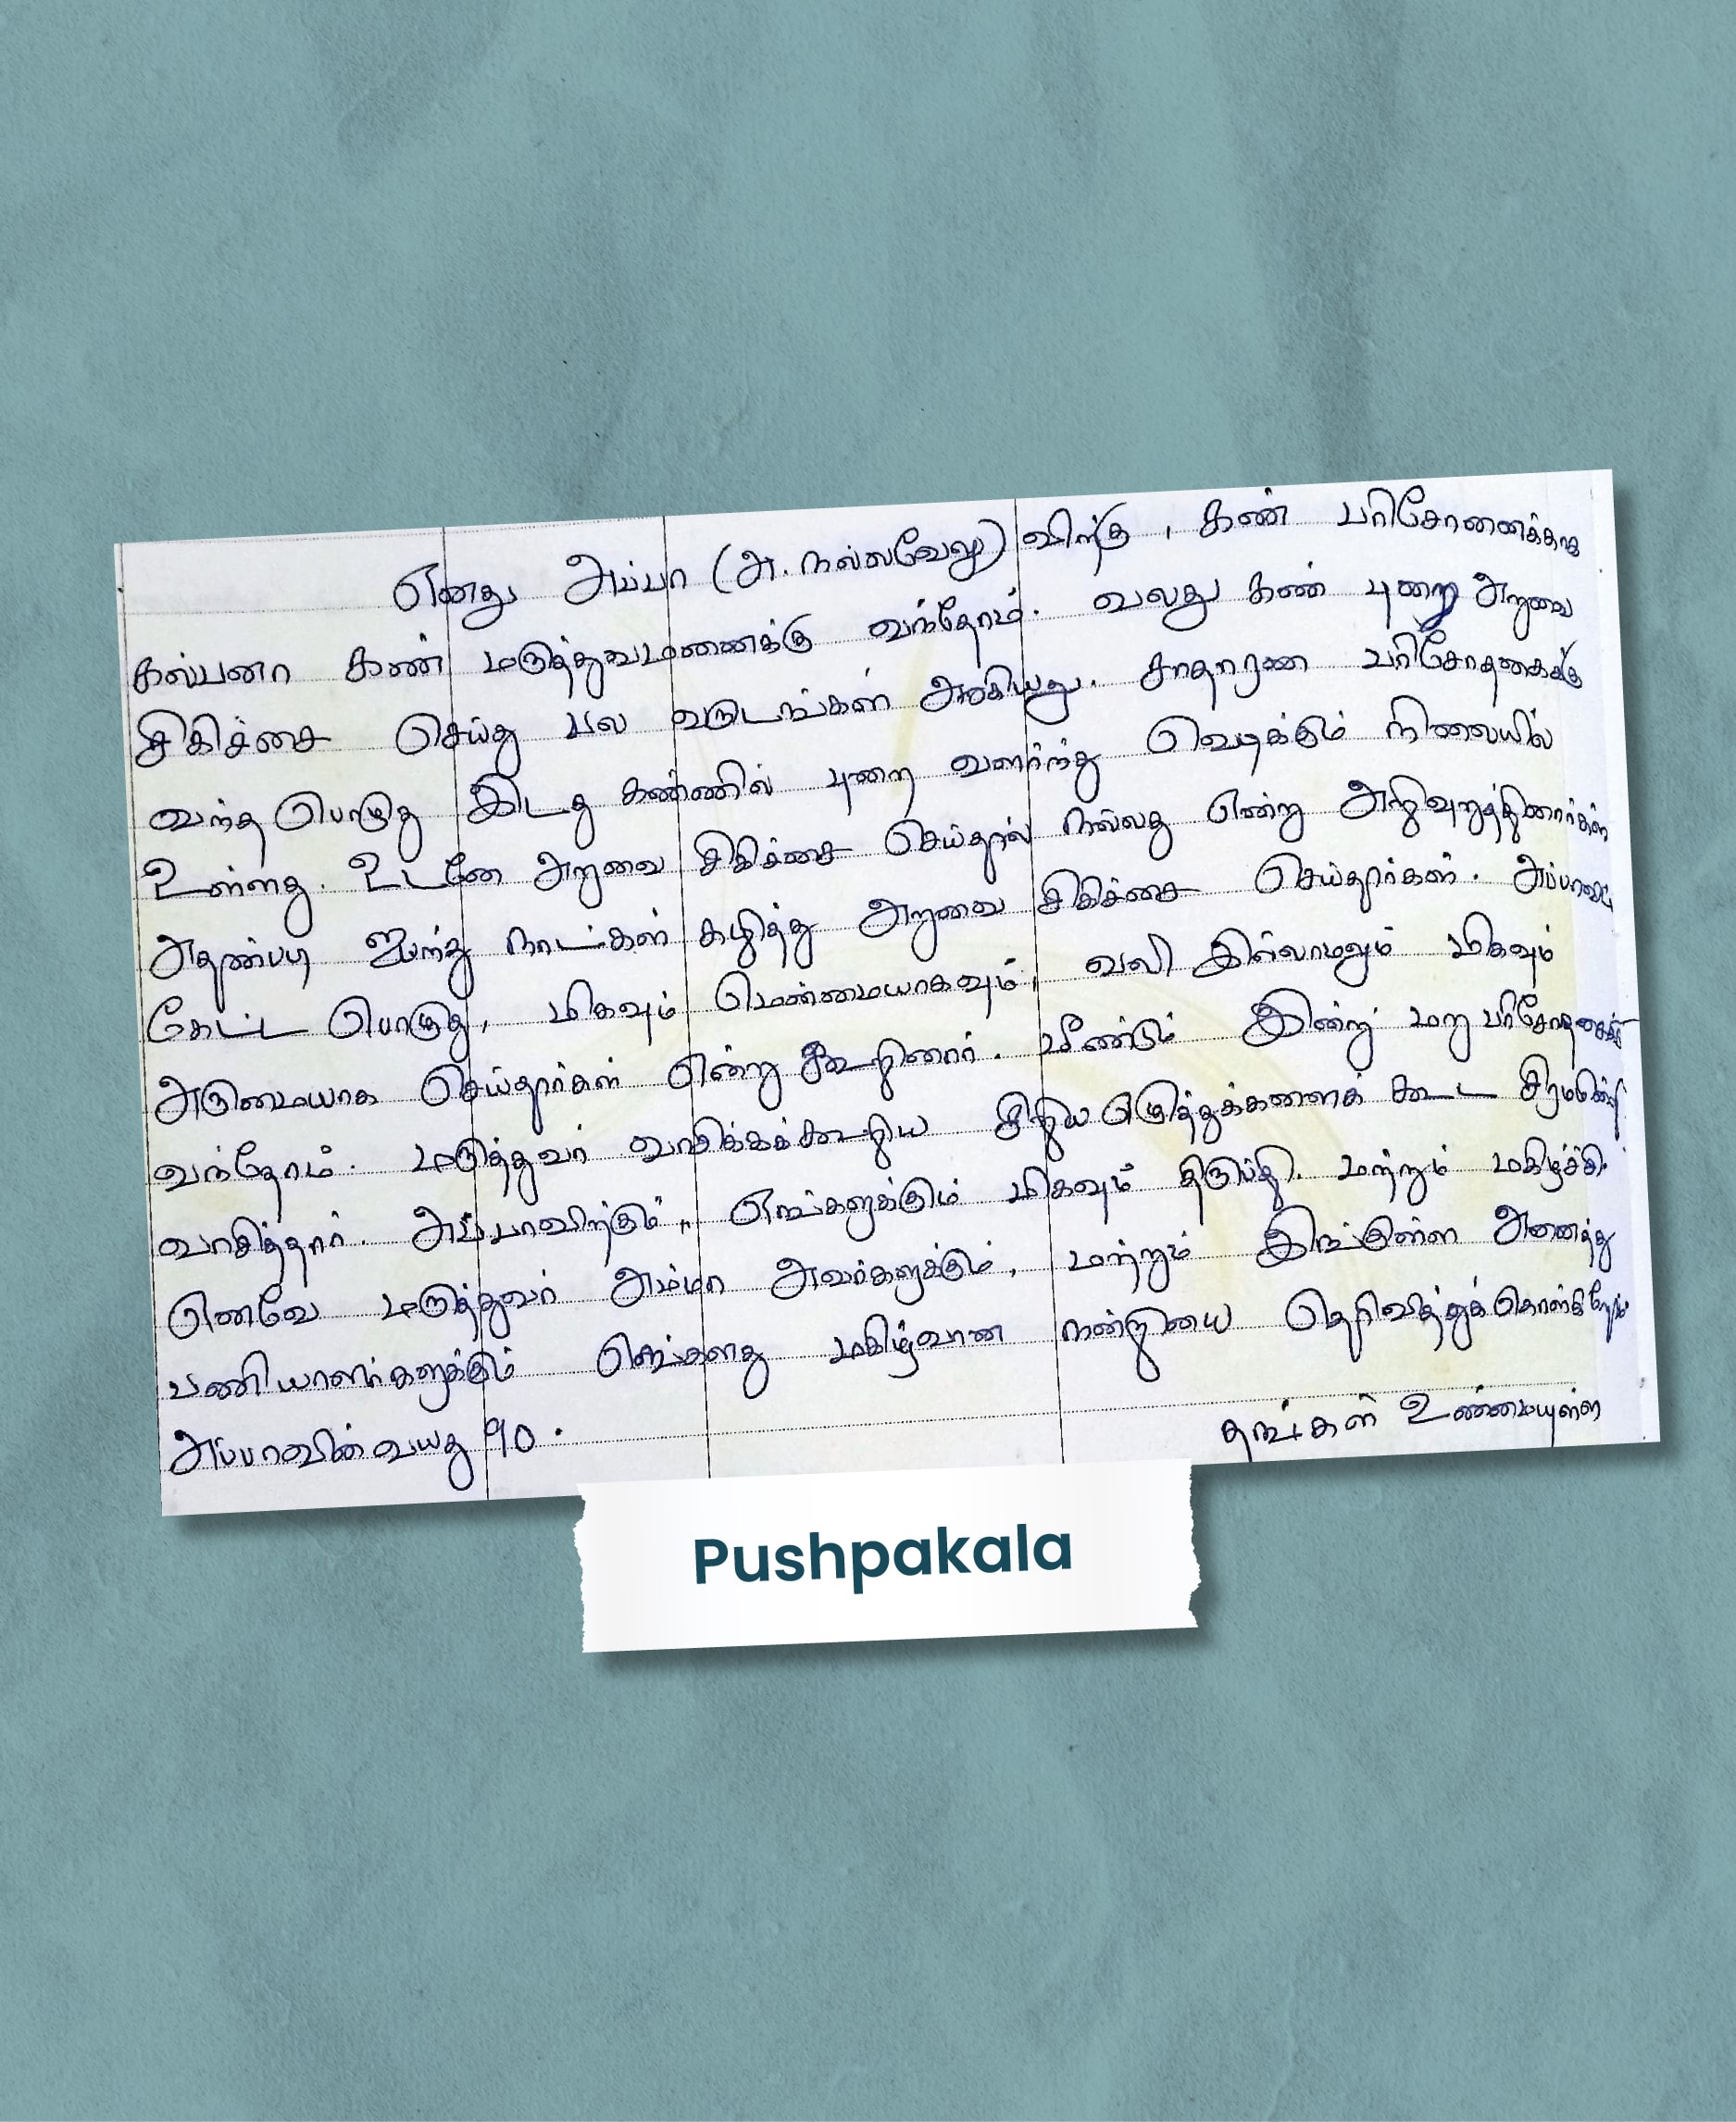 எனது அப்பா (அ. நல்லவேலு) விற்கு, கண் பரிசோனைக்காக
கல்பனா கண் மருத்துவமணைக்கு வந்தோம். வலது கண் புறை அறுவை
சிகிச்சை செய்து பல வருடங்கள் ஆகியது. சாதாரண பரிசோதகைக்கு
வந்த பொழுது இடது கண்ணில் புறை வளர்ந்து வெடிக்கும் நிலையில்
உள்ளது. உடனே அறுவை சிகிச்சை செய்தால் நல்லது என்று அறிவுறுத்தினார்கள்
அதன்படி ஐந்து நாட்கள் கழித்து அறுவை சிகிச்சை செய்தார்கள். அப்பாவை
கேட்ட பொழுது, மிகவும் மென்மையாகவும், வலி இல்லாமலும் மிகவும்
அருமையாக செய்தார்கள் என்று கூறினார். மீண்டும் இன்று மறு பரிசோதகைக்கு
வந்தோம். மருத்துவர் வாசிக்கக்கூறிய சிறிய எழுத்துக்களைக் கூட சிரமமின்றி
வாசித்தார். அப்பாவிற்கும், எங்களுக்கும் மிகவும் திருப்தி. மற்றும் மகிழ்ச்சி.
எனவே மருத்துவர் அம்மா அவர்களுக்கும், மற்றும் இங்குள்ள அனைத்து
பணியாளர்களுக்கும் எங்களது மகிழ்வான நன்றியை தெரிவித்துக்கொள்கிறேன்
அப்பாவின் வயது 90.
தங்கள் உண்மையுள்ள
Pushpakala